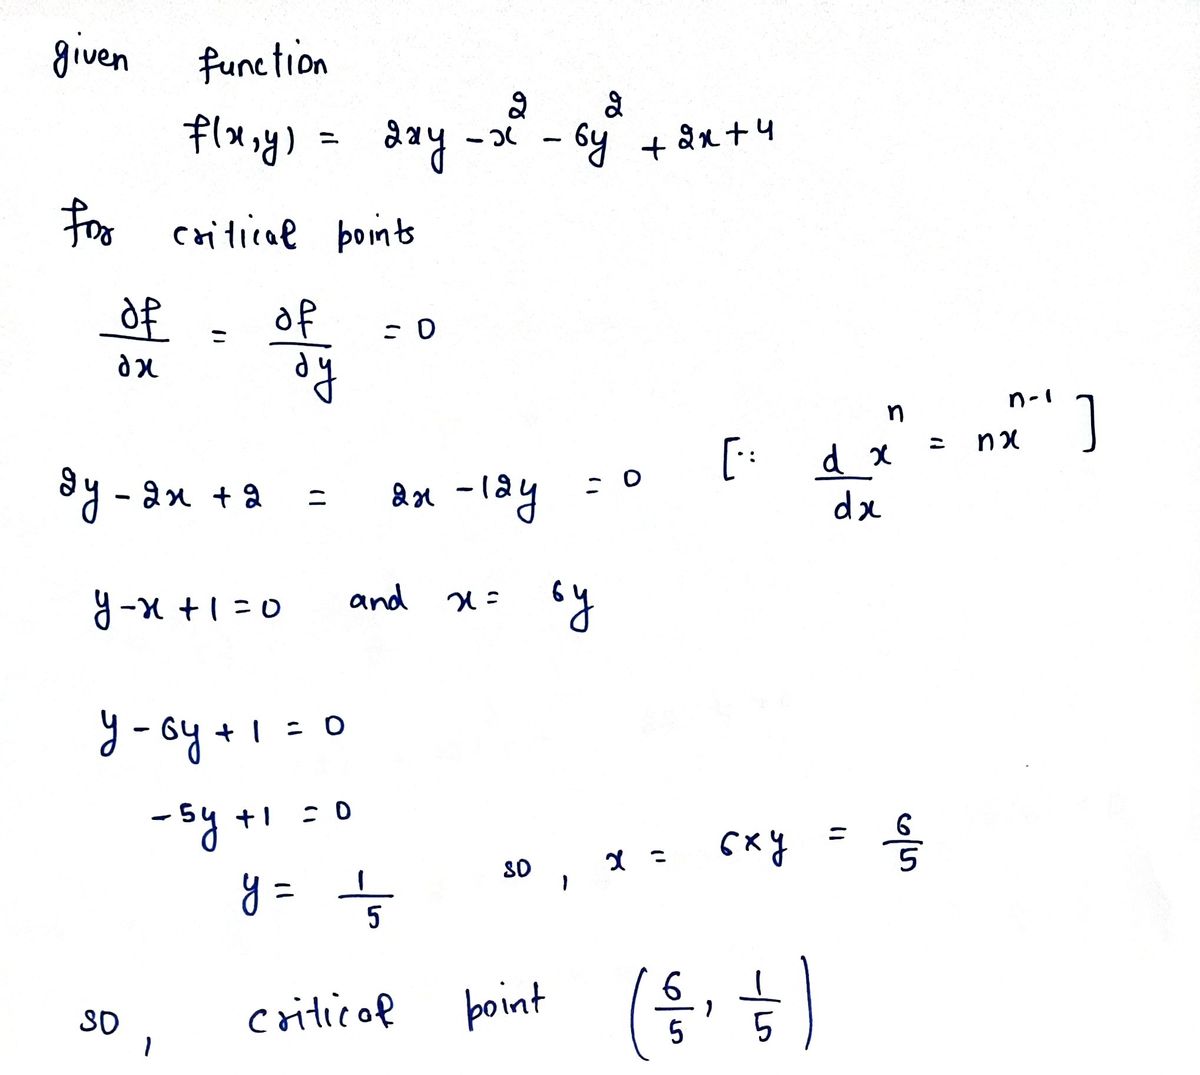 given function
f(x,y) = 2xy - x² - 6y² + 2x + 4
for critical points
∂f/∂x = ∂f/∂y = 0
2y - 2x + 2 = 2x - 12y = 0 [∵ d/dx xⁿ = nxⁿ⁻¹]
y - x + 1 = 0 and x = 6y
y - 6y + 1 = 0
-5y + 1 = 0
y = 1/5 so, x = 6×y = 6/5
so, critical point (6/5, 1/5)